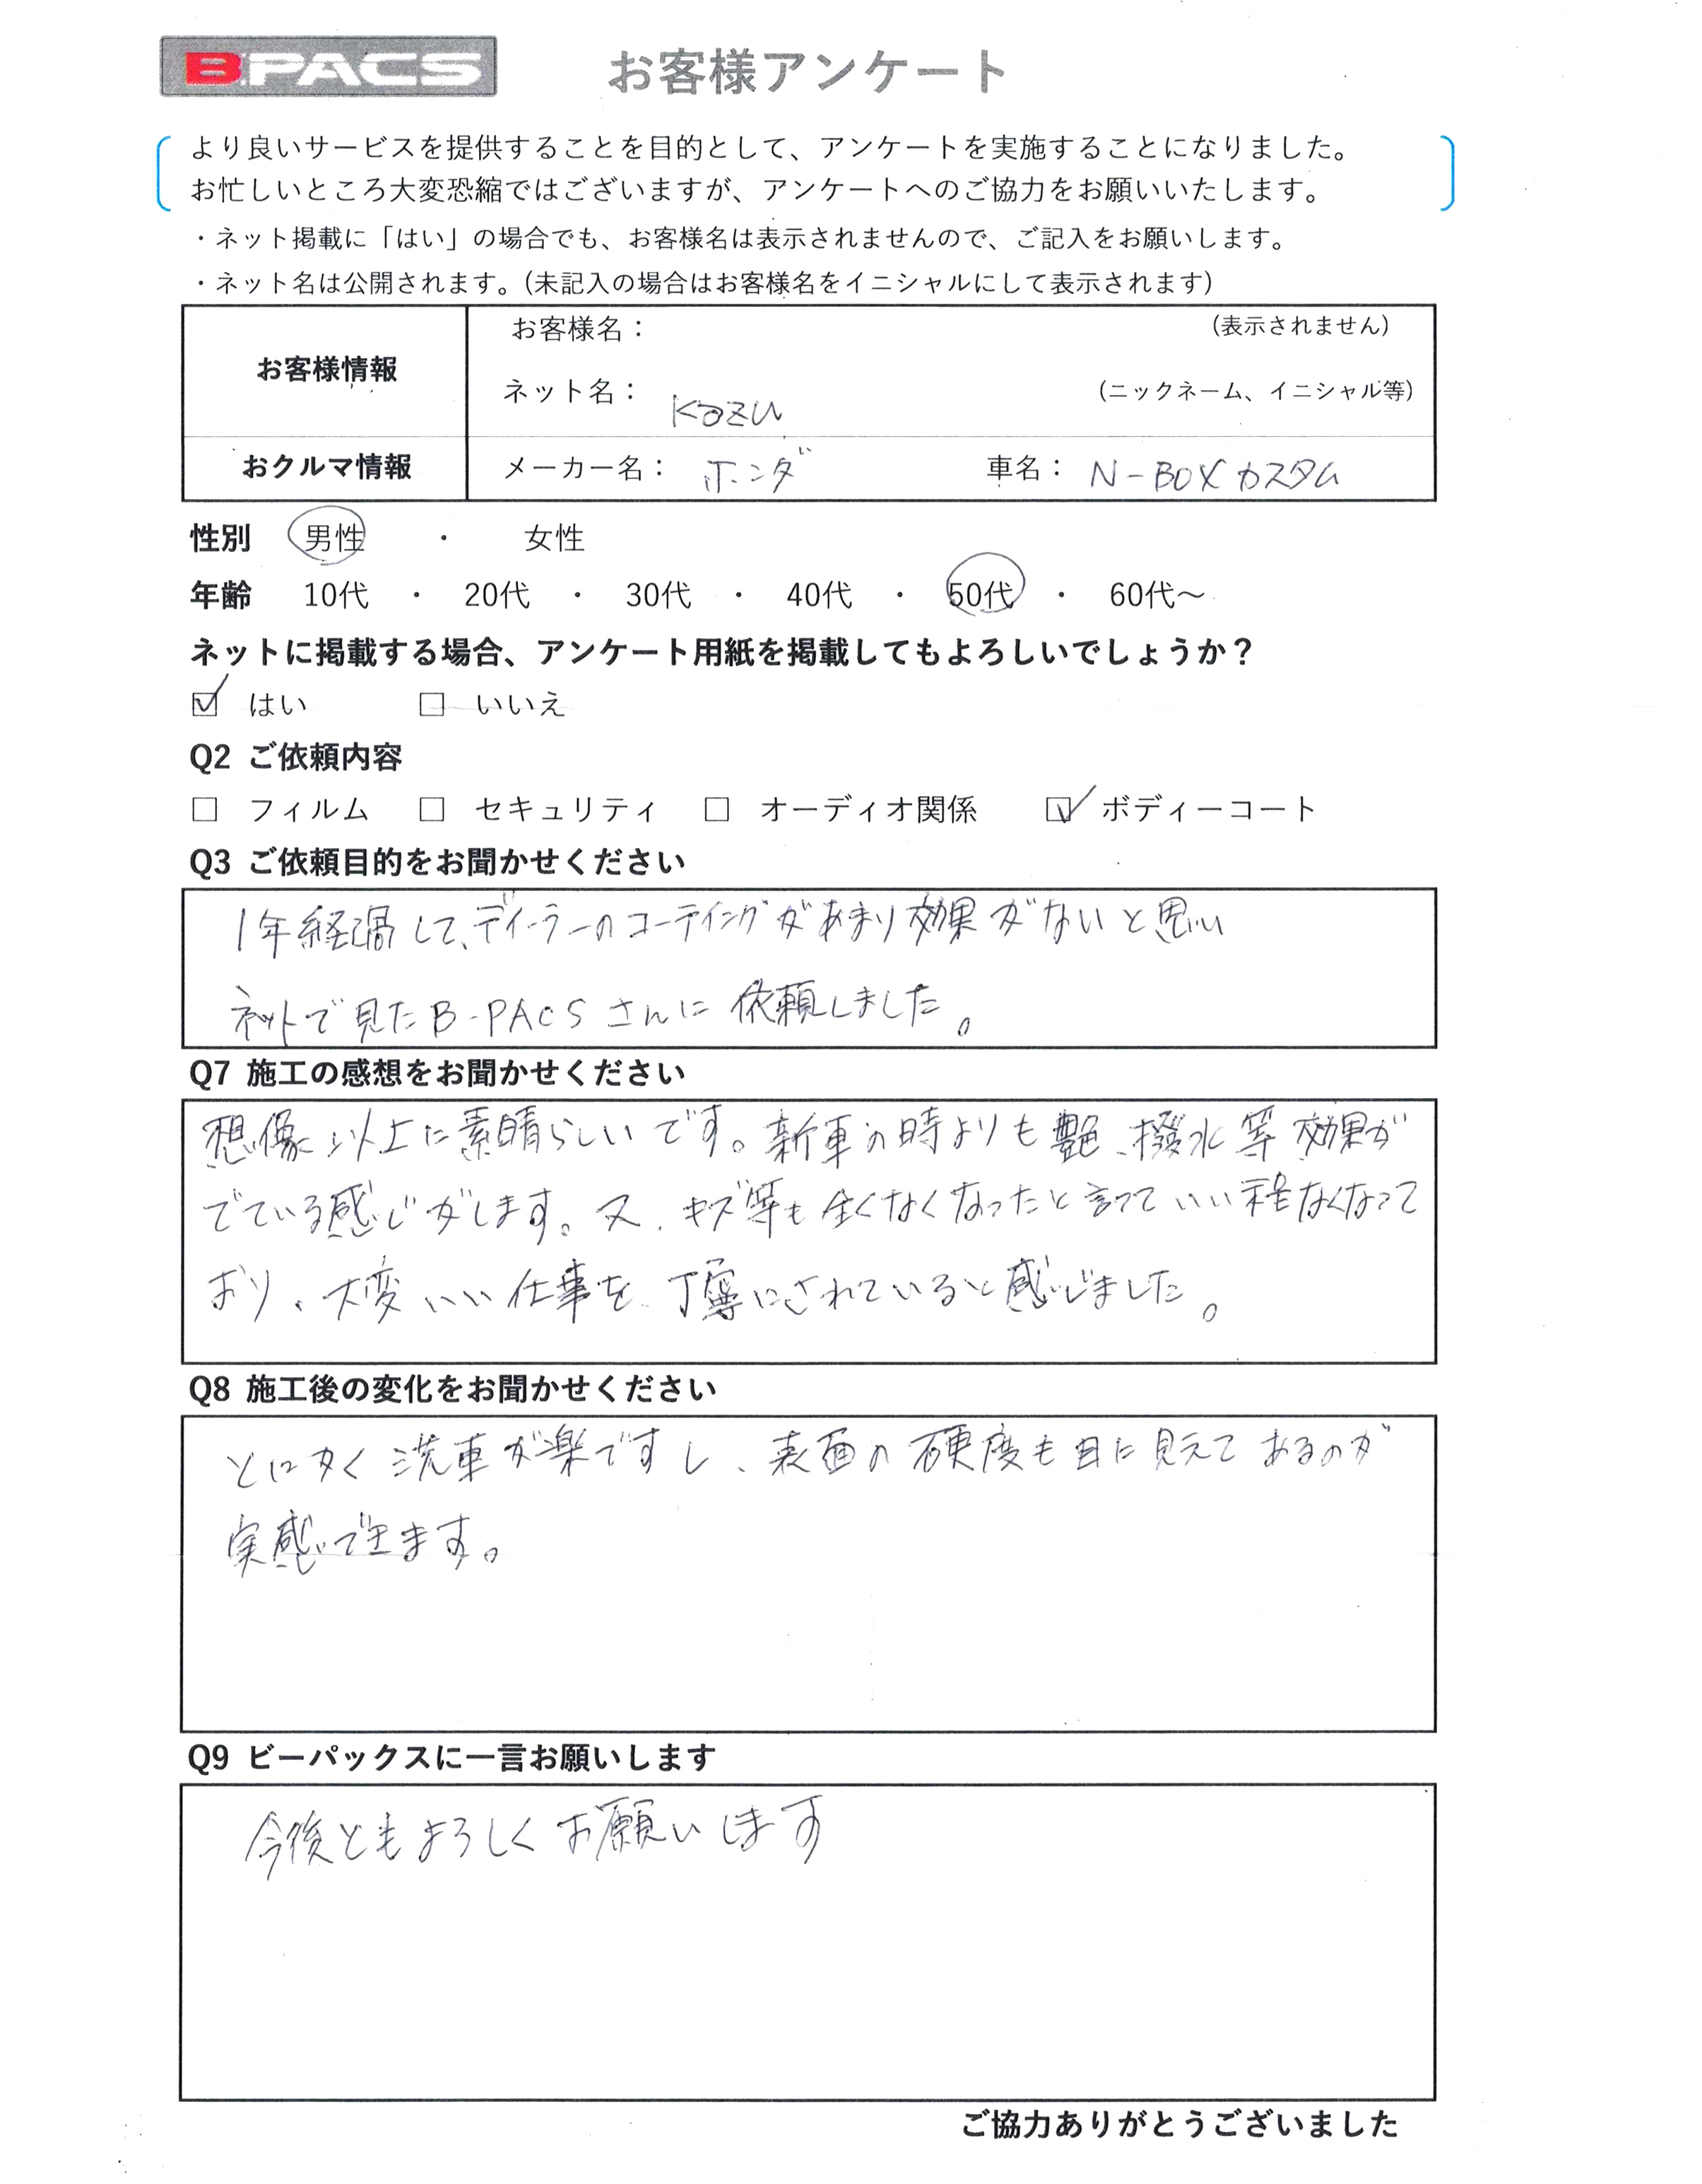 B.PACS お客様アンケート
より良いサービスを提供することを目的として、アンケートを実施することになりました。
お忙しいところ大変恐縮ではございますが、アンケートへのご協力をお願いいたします。
・ネット掲載に「はい」の場合でも、お客様名は表示されませんので、ご記入をお願いします。
・ネット名は公開されます。(未記入の場合はお客様名をイニシャルにして表示されます)
お客様情報
お客様名： (表示されません)
ネット名： kazu (ニックネーム、イニシャル等)
おクルマ情報 メーカー名： ホンダ 車名： N-BOXカスタム
性別 男性 ・ 女性
年齢 10代 ・ 20代 ・ 30代 ・ 40代 ・ 50代 ・ 60代～
ネットに掲載する場合、アンケート用紙を掲載してもよろしいでしょうか？
☑ はい □ いいえ
Q2 ご依頼内容
□ フィルム □ セキュリティ □ オーディオ関係 ☑ ボディーコート
Q3 ご依頼目的をお聞かせください
1年経過して、ディーラーのコーティングがあまり効果がないと思い
ネットで見たB-PACSさんに依頼しました。
Q7 施工の感想をお聞かせください
想像以上に素晴らしいです。新車の時よりも艶、撥水等効果が
でている感じがします。又、キズ等も全くなくなったと言っていい程なくなって
おり、大変いい仕事を丁寧にされていると感じました。
Q8 施工後の変化をお聞かせください
とにかく洗車が楽ですし、表面の硬度も目に見えてあるのが
実感できます。
Q9 ビーパックスに一言お願いします
今後ともよろしくお願いします
ご協力ありがとうございました